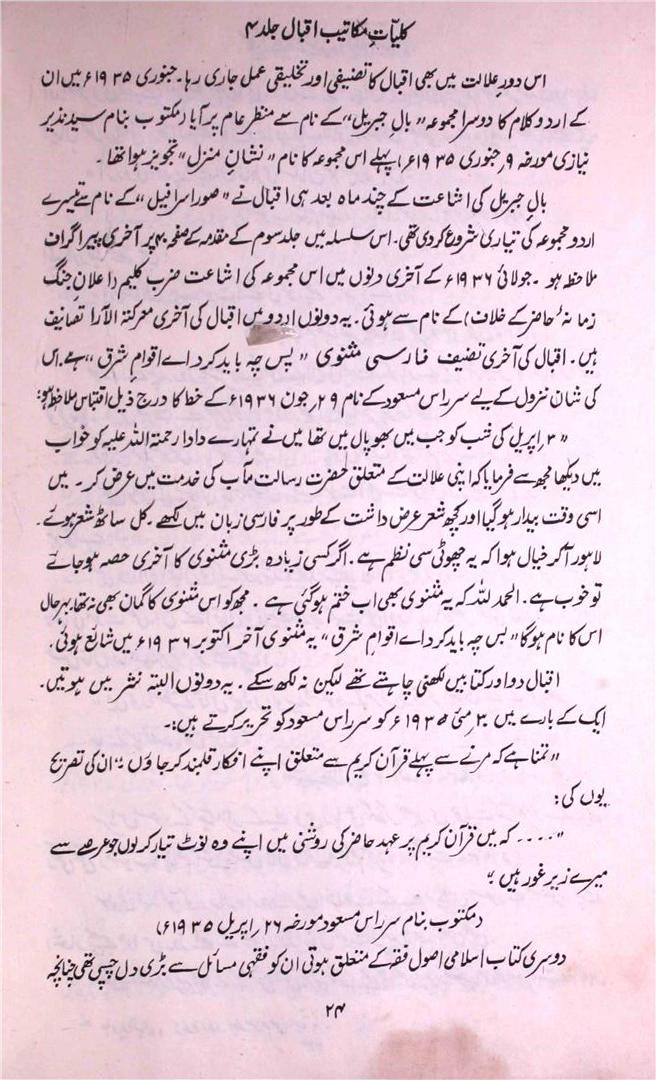 کلیاتِ مکاتیب اقبال جلد ۴
اس دورِ علالت میں بھی اقبال کا تصنیفی اور تخلیقی عمل جاری رہا۔ جنوری ۱۹۳۵ء میں ان
کے اردو کلام کا دوسرا مجموعہ "بالِ جبریل" کے نام سے منظرِ عام پر آیا (مکتوب بنام سید نذیر
نیازی مورخہ ۹ جنوری ۱۹۳۵ء) پہلے اس مجموعہ کا نام "نشانِ منزل" تجویز ہوا تھا۔
بالِ جبریل کی اشاعت کے چند ماہ بعد ہی اقبال نے "صورِ اسرافیل" کے نام سے تیسرے
اردو مجموعہ کی تیاری شروع کردی تھی۔ اس سلسلہ میں جلد سوم کے مقدمہ کے صفحہ ۴۰ پر آخری پیراگراف
ملاحظہ ہو۔ جولائی ۱۹۳۶ء کے آخری دنوں میں اس مجموعہ کی اشاعت ضربِ کلیم (اعلانِ جنگ
زمانہٴ حاضر کے خلاف) کے نام سے ہوئی۔ یہ دونوں اردو میں اقبال کی آخری معرکتہ الآرا تصانیف
ہیں۔ اقبال کی آخری تصنیف فارسی مثنوی "پس چہ باید کرد اے اقوامِ شرق" ہے۔ اس
کی شان نزول کے لیے سر راس مسعود کے نام ۲۹ جون ۱۹۳۶ء کے خط کا درج ذیل اقتباس ملاحظہ ہو:
"۳ اپریل کی شب کو جب میں بھوپال میں تھا میں نے تمہارے دادا رحمتہ اللہ علیہ کو خواب
میں دیکھا مجھ سے فرمایا کہ اپنی علالت کے متعلق حضرت رسالت مآب کی خدمت میں عرض کر۔ میں
اسی وقت بیدار ہوگیا اور کچھ شعر عرض داشت کے طور پر فارسی زبان میں لکھے۔ کل ساٹھ شعر ہوئے۔
لاہور آکر خیال ہوا کہ یہ چھوٹی سی نظم ہے۔ اگر کسی زیادہ بڑی مثنوی کا آخری حصہ ہوجائے
تو خوب ہے۔ الحمد للہ کہ یہ مثنوی بھی اب ختم ہوگئی ہے۔ مجھ کو اس مثنوی کا گمان بھی نہ تھا، بہرحال
اس کا نام ہوگا "پس چہ باید کرد اے اقوامِ شرق" یہ مثنوی آخر اکتوبر ۱۹۳۶ء میں شایع ہوئی۔
اقبال دو اور کتابیں لکھنی چاہتے تھے لیکن نہ لکھ سکے۔ یہ دونوں البتہ نثر میں ہوتیں۔
ایک کے بارے میں ۳۰ مئی ۱۹۳۵ء کو سر راس مسعود کو تحریر کرتے ہیں:۔
"تمنا ہے کہ مرنے سے پہلے قرآن کریم سے متعلق اپنے افکار قلمبند کر جاؤں" ان کی تصریح
یوں کی:
"۔۔۔۔ کہ میں قرآن کریم پر عہد حاضر کی روشنی میں اپنے وہ نوٹ تیار کر لوں جو عرصے سے
میرے زیر غور ہیں"
(مکتوب بنام سر راس مسعود مورخہ ۲۶ اپریل ۱۹۳۵ء)
دوسری کتاب اسلامی اصول فقہ کے متعلق ہوتی ان کو فقہی مسائل سے بڑی دل چسپی تھی چنانچہ
۲۴